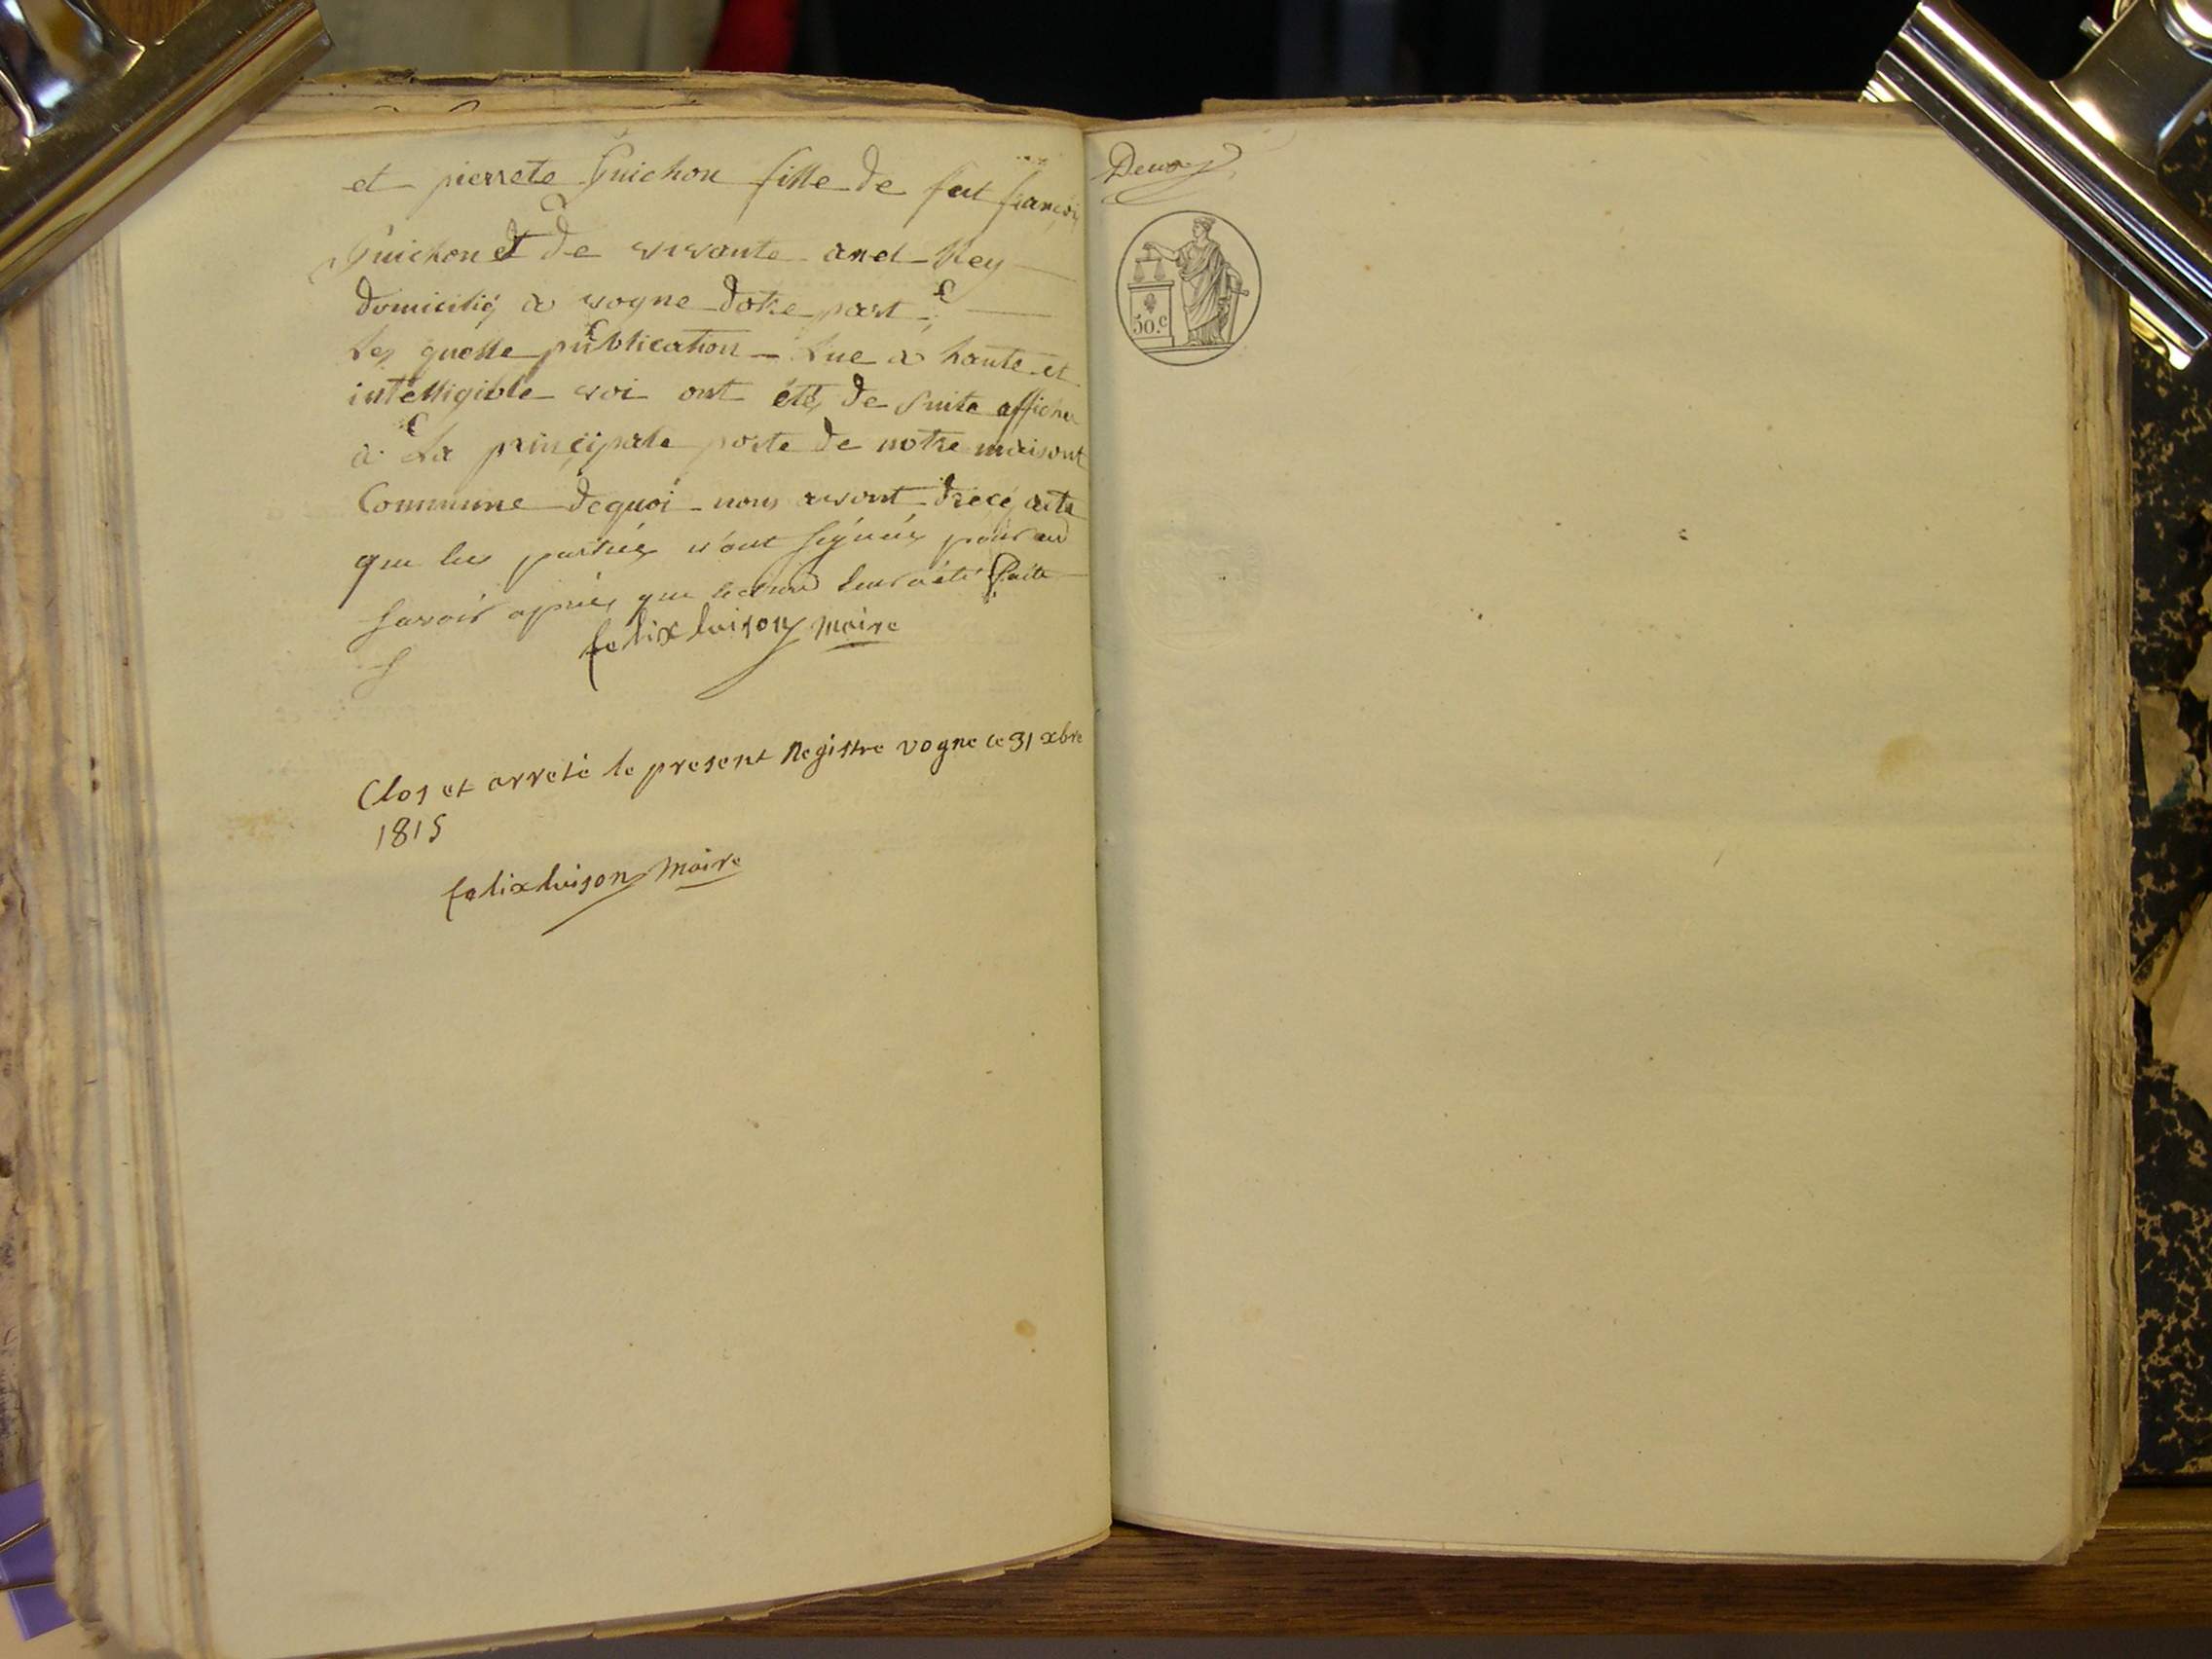 et pierrete Guichon fille de fut françois
Guichon et de vivante and Rey
domicilié a vogne dotre part
Les quelle publication Lue a haute et
intelligible voi ont été de suite affiche
a La principale porte de notre maisont
Commune de quoi nous avont drecé acte
que les parties n'ont signées pour au
savoir apries que lecture leur a été faite
felix luison maire
Clos et arreté le present Registre vogne ce 31 xbre
1815
felix luison Maire
Deux
50.c